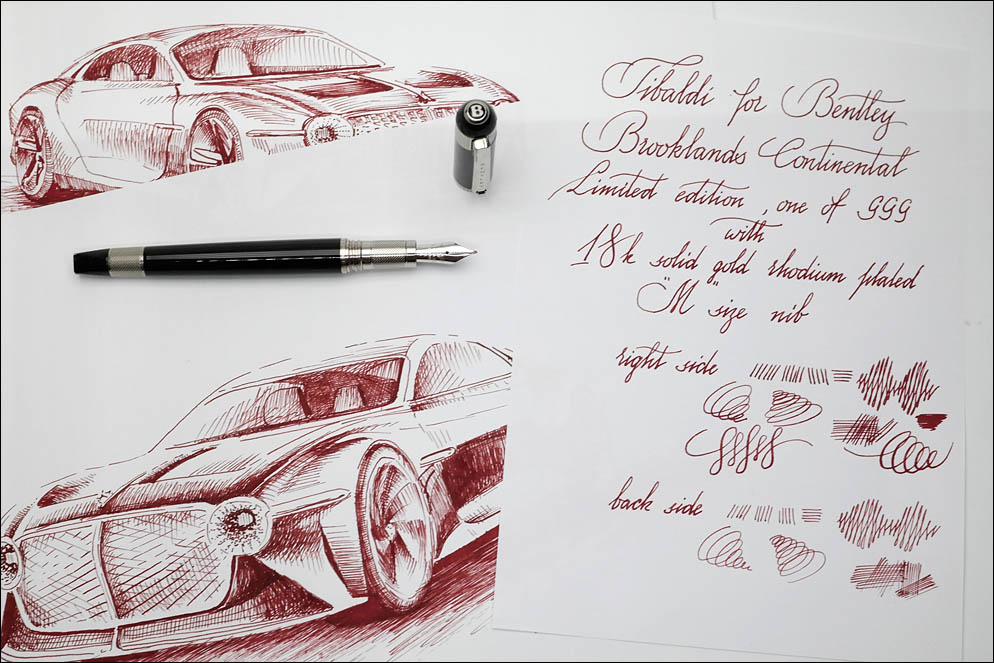 B
Tibaldi for Bentley
Brooklands Continental
Limited edition, one of 999
with
18k solid gold rhodium plated
"M" size nib
right side
back side